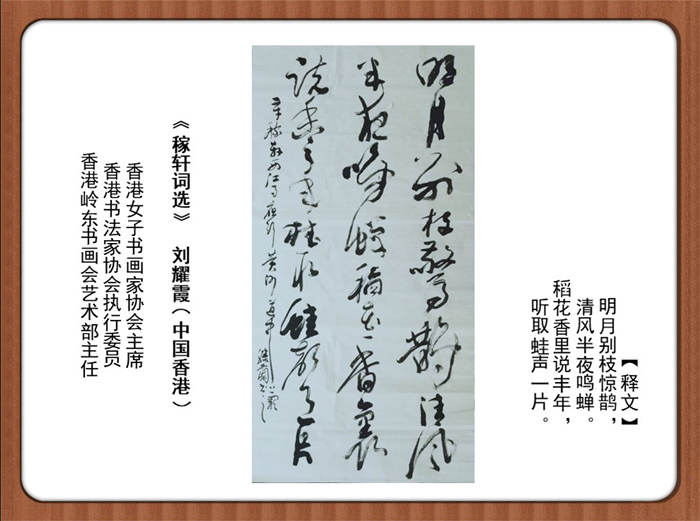 【释文】
明月别枝惊鹊，
清风半夜鸣蝉。
稻花香里说丰年，
听取蛙声一片。
明月别枝驚鵲清风
半夜鳴蟬稻花香裏
说丰年聽取蛙聲一片
辛稼轩西江月夜行黄沙道中
《稼轩词选》 刘耀霞（中国香港）
香港女子书画家协会主席
香港书法家协会执行委员
香港岭东书画会艺术部主任